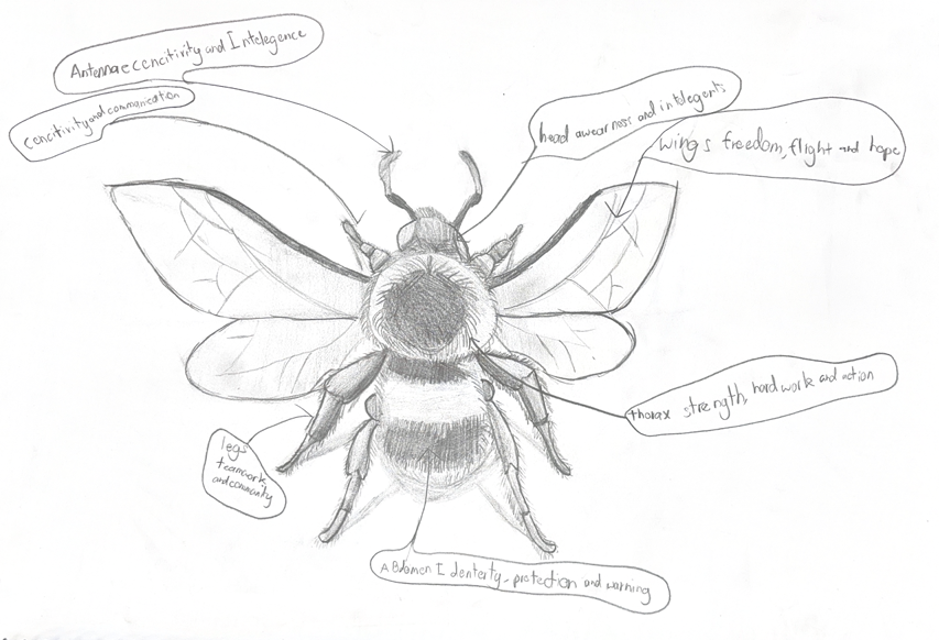 Antennae cencitivity and Intelegence
cencitivity and communication
head awearness and intelegents
wings freedom, flight and hope
thorax strength, hard work and action
legs
teamwork,
and community
ABdomen Identerty, protection and warning